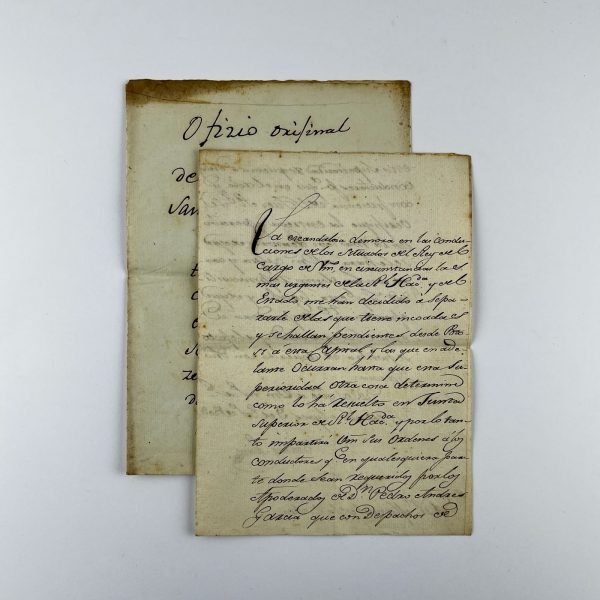 Ofizio oriſinal
de
San
La escandalosa demora en las condu-
ciones de los Situados del Rey del
Cargo de Vm. en circunstancias las
mas urgentes de la Rl. Hazda. y del
Estado, me han decidido á sepa-
rarle de las que tiene incoadas
y se hallan pendientes desde
á esta Capital y las que en ade-
lante ocurran hasta que esta Su-
perioridad otra cosa determine
como lo há resuelto en Junta
Superior de Rl. Hazda. y por lo tan-
to impartirá Vm sus ordenes á los
conductores y en qualesquiera par-
te donde sean requeridos por los
Apoderados de Dn. Pedro Andres
Garcia que con Despachos de